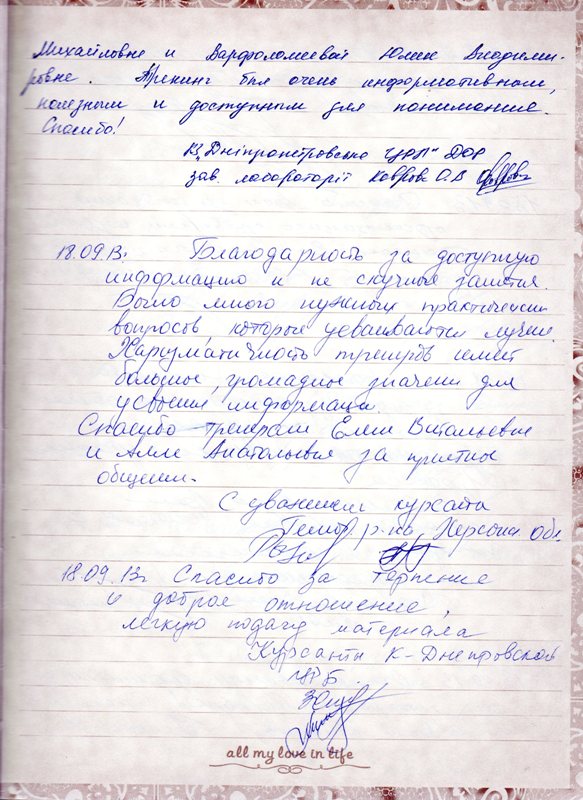 Михайловне и Варфоломеевой Юлие Владими-
ровне. Тренинг был очень информативным,
полезным и доступным для понимание.
Спасибо!
КЗ „Дніпропетровська ЦРЛ" ДОР
зав. лабораторії Коврова О.В
18.09.13г. Благодарность за доступную
информацию и не скучные занятия.
Было много нужных практических
вопросов которые усваиваются лучше.
Харизматичность тренеров имеет
большое, громадное значени для
усвоения информации.
Спасибо тренерам Елене Витальевне
и Алле Анатольевне за приятное
общение.
С уважением курсанты
р-на, Херсонск обл.
18.09.13г Спасибо за терпение
и доброе отношение,
легкую подачу материала
Курсанты К-Днепровской
ЦРБ.
all my love in life